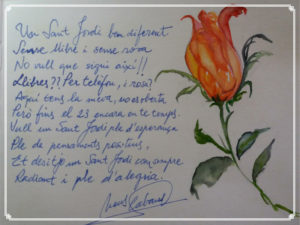 Un Sant Jordi ben diferent
Sense llibre i sense rosa
No vull que sigui així!!
Llibres?? Per telèfon, i rosa?
Aquí tens la meva, no esbota
Però fins el 23 encara en te temps.
Vull un Sant Jordi ple d'esperança
Ple de pensaments positius,
Et desitjo un Sant Jordi com sempre
Radiant i ple d'alegria.